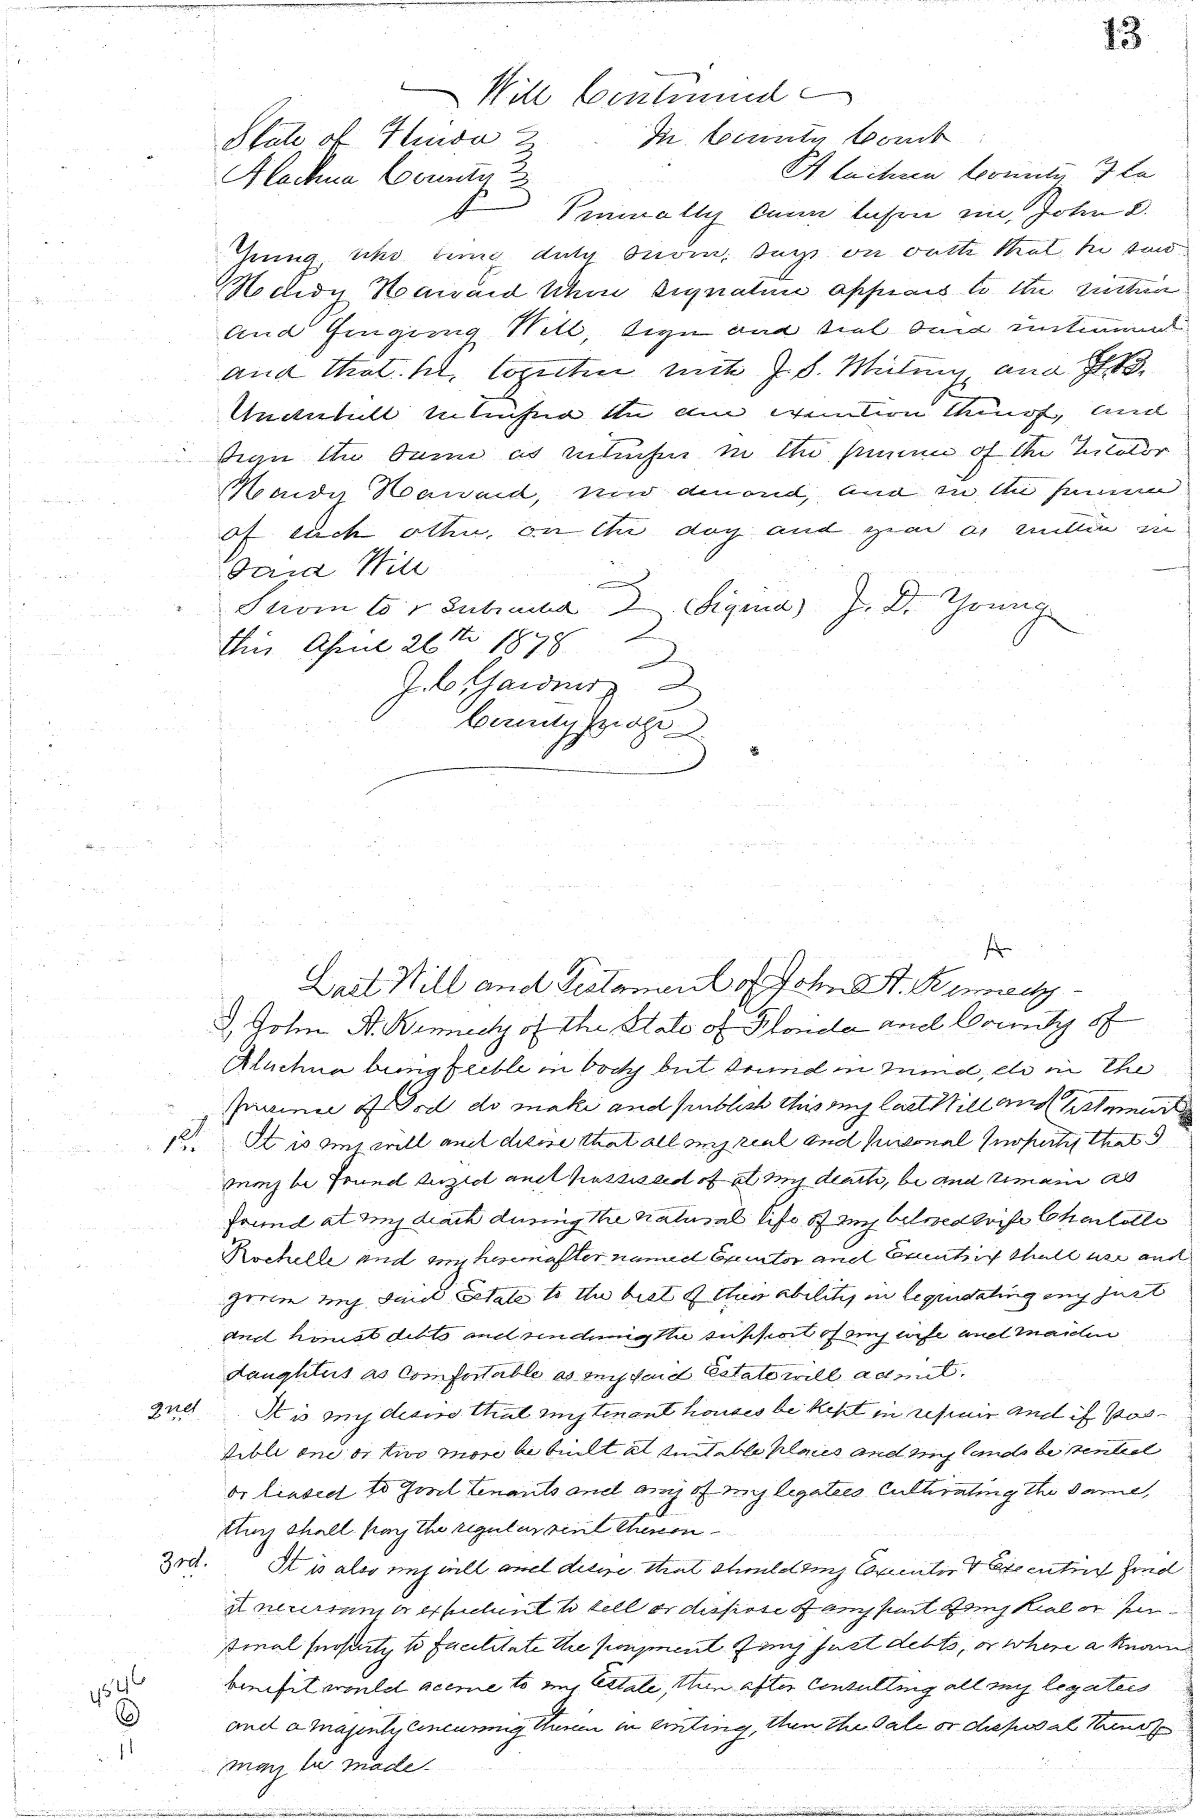 13
Will Continued
State of Florida In County Court
Alachua County Alachua County Fla
Personally came before me, John D.
Young, who being duly sworn, says on oath that he saw
Hardy Haward whose signature appears to the within
and foregoing Will, sign and seal said instrument
and that he, together with J. S. Whitney and J. B.
Underhill witnessed the due execution thereof, and
sign the same as witnesses in the presence of the Testator
Hardy Haward, now deceased, and in the presence
of each other, on the day and year as written in
said Will
Sworn to & Subscribed (Signed) J. D. Young
this April 26th 1878
J. C. Gardner
County Judge
A
Last Will and Testament of John A. Kennedy -
I, John A. Kennedy of the State of Florida and County of
Alachua being feeble in body but sound in mind, do in the
presence of God do make and publish this my last Will and Testament
1st. It is my will and desire that all my real and personal property that I
may be found seized and possessed of at my death, be and remain as
found at my death during the natural life of my beloved wife Charlotte
Rochelle and my hereinafter named Executor and Executrix shall use and
govern my said Estate to the best of their ability in liquidating my just
and honest debts and rendering the support of my wife and maiden
daughters as comfortable as my said Estate will admit.
2nd It is my desire that my tenant houses be kept in repair and if pos-
sible one or two more be built at suitable places and my lands be rented
or leased to good tenants and any of my legatees cultivating the same,
they shall pay the regular rent thereon -
3rd. It is also my will and desire that should my Executor & Executrix find
it necessary or expedient to sell or dispose of any part of my Real or per-
sonal property to facilitate the payment of my just debts, or where a known
benefit would accrue to my Estate, then after consulting all my legatees
and a majority concurring therein in writing, then the sale or disposal thereof
may be made.
4546
6
11